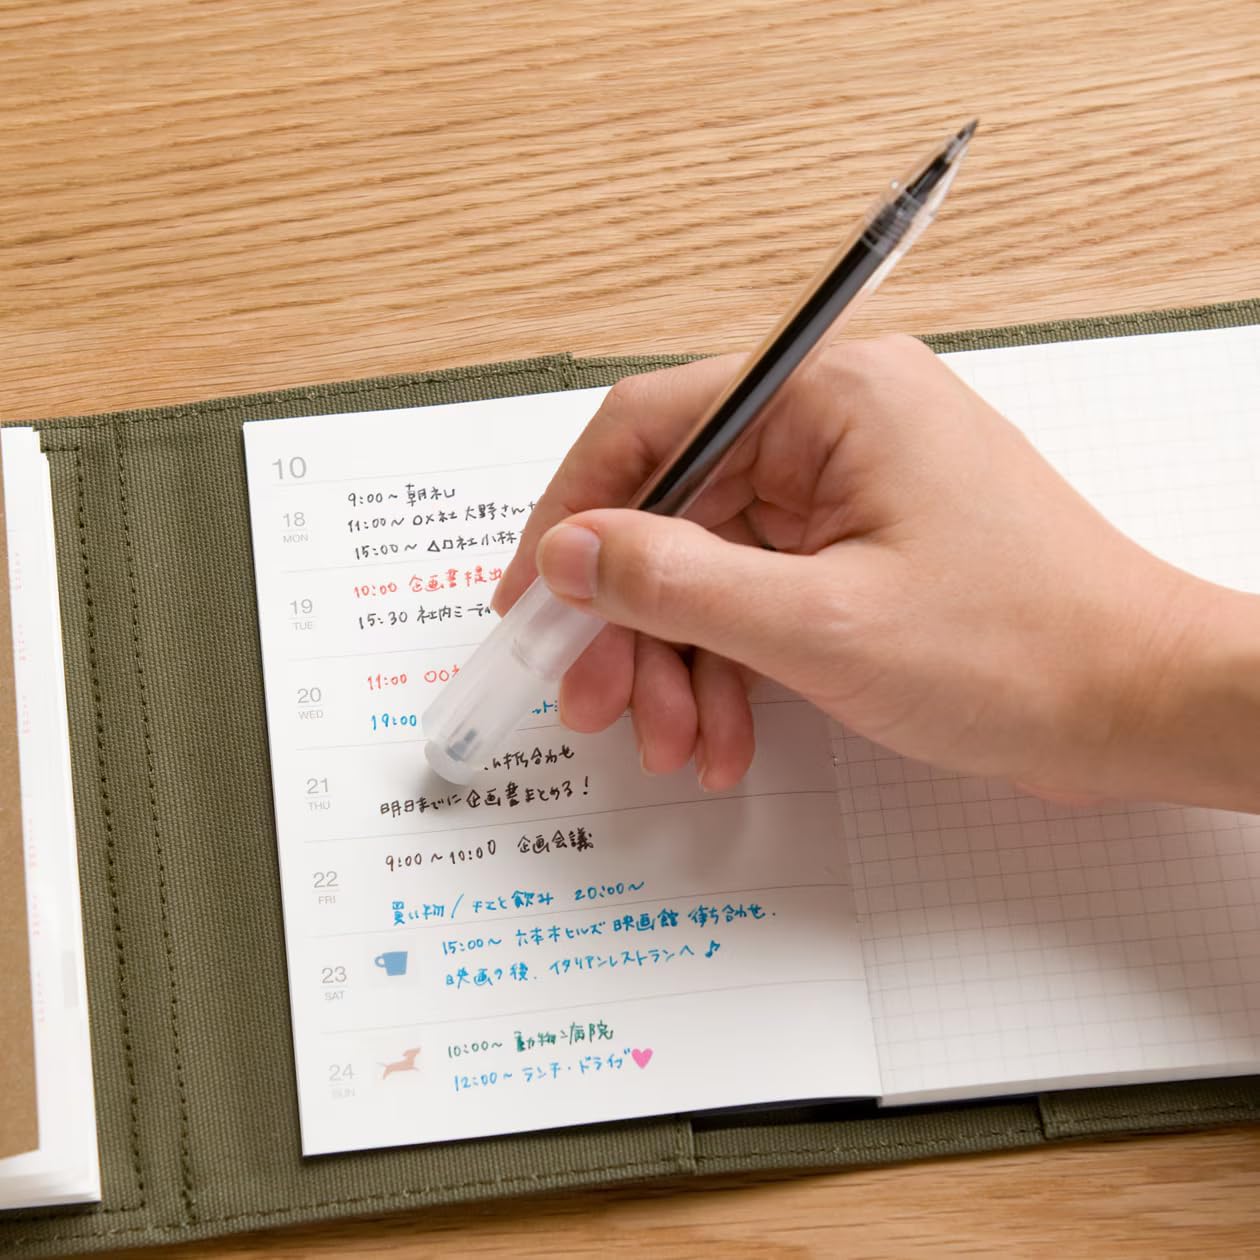 10
18
MON
9:00~ 朝礼
11:00~ O×社 大野さん
15:00~ △ロ社小林
19
TUE
10:00 企画書提出
15:30 社内ミーティ
20
WED
11:00 〇〇社
19:00
21
THU
打ち合わせ
明日までに企画書まとめる!
22
FRI
9:00~10:00 企画会議
買い物/ と飲み 20:00~
23
SAT
15:00~ 六本木ヒルズ 映画館 待ち合わせ.
映画の後、イタリアンレストランへ♪
24
SUN
10:00~ 動物病院
12:00~ ランチ・ドライブ♥